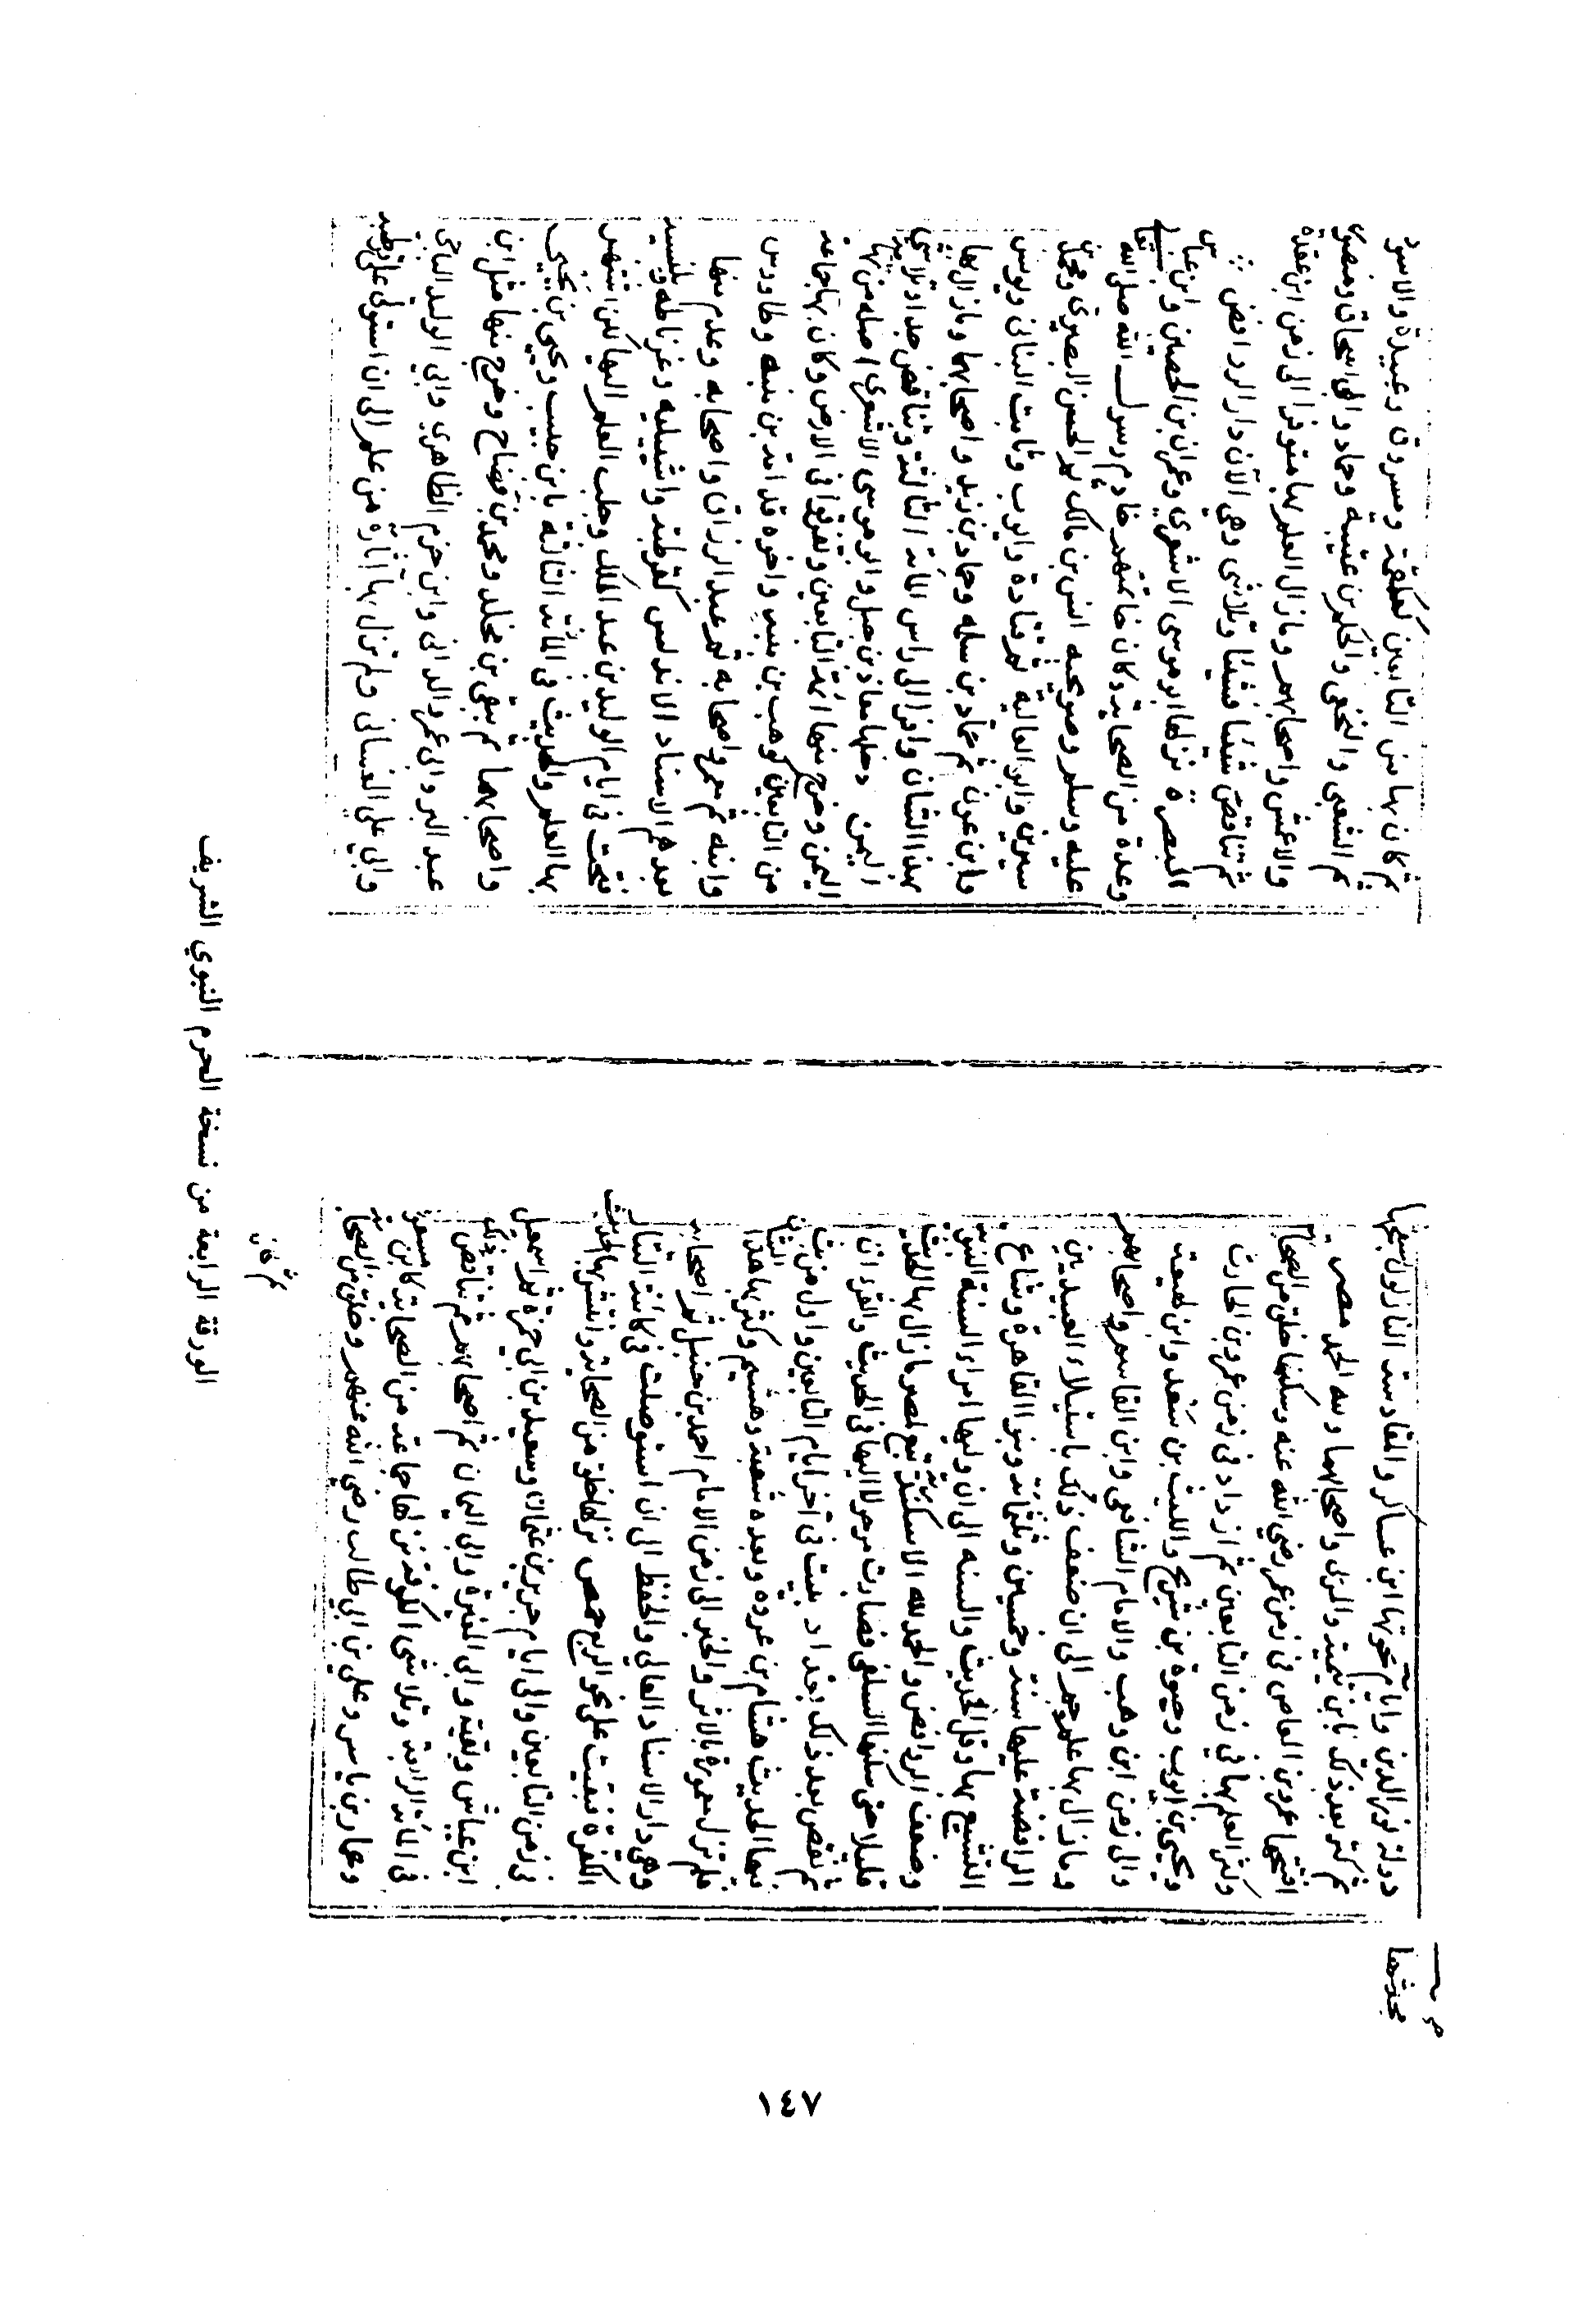 دولة نور الدين وايام محدثها ابن عساكر والمقادسة النازلون بسفحها
ثم كثر بعد ذلك بابن تيمية والمزى واصحابهما ولله الحمد مصر
افتتحها عمرو بن العاص في زمن عمر رضي الله عنه وسكنها خلق من الصحابة
وكثر العلم بها في زمن التابعين ثم ازداد في زمن عمرو بن الحارث
ويحيى بن ايوب وحيوة بن شريح والليث بن سعد وابن لهيعة
والى زمن ابن وهب والامام الشافعي وابن القاسم واصحابهم
وما زال بها علم جم الى ان ضعف ذلك باستيلاء العبيديين
الرافضة عليها سنة وخمسين وثلثمائة وبنوا القاهرة وشاع
التشيع بها وقل الحديث والسنة الى ان وليها امراء السنة النبوية
وضعف الروافض والحمد لله الاسكندرية تبع لمصر ما زال بها الحديث
قليلا حتى سكنها السلفي فصارت مرحولا اليها في الحديث والقراءات
ثم نقص بعد ذلك بغداد بنيت في آخر ايام التابعين واول من بث
فيها الحديث هشام بن عروة وبعده شعبة وهشيم وكثر بها هذا الشأن
فلم تزل معمورة بالاثر والخبر الى زمن الامام احمد بن حنبل ثم اصحابه
وهي دار الاسناد العالي والحفظ الى ان استوصلت في كائنة التتار
الكفرة فبقيت على نحو الربع حمص نزلها خلق من الصحابة وانتشر بها الحديث
في زمن التابعين والى ايام حريز بن عثمان وسعيد بن ابي حمزة ثم اسمعيل
ابن عياش وبقية وابى المغيرة وابى اليمان ثم اصحابهم ثم تناقص ذلك
في المائة الرابعة وتلاشى الكوفة نزلها جماعة من الصحابة كابن مسعود
وعمار بن ياسر وعلي بن ابي طالب رضي الله عنهم وخلق من الصحابة
ثم كان
محدثها
صح
ثم كان بها من التابعين كعلقمة ومسروق وعبيدة والاسود
ثم الشعبي والنخعي والحكم بن عتيبة وحماد وابى اسحاق ومنصور
والاعمش واصحابهم وما زال العلم بها متوفرا الى زمن ابن عقدة
ثم تناقص شيئا فشيئا وتلاشى وهي الآن دار الروافض
البصرة نزلها ابو موسى الاشعري وعمران بن الحصين وابن عباس
وعدة من الصحابة وكان خاتمتهم خادم رسول الله صلى الله
عليه وسلم وصويحبه انس بن مالك ثم الحسن البصري ومحمد بن
سيرين وابو العالية ثم قتادة وايوب وثابت البناني ويونس
وابن عون ثم حماد بن سلمة وحماد بن زيد واصحابهما وما زال بها
هذا الشان وافرا الى راس المائة الثالثة وتناقص جدا وتلاشى
اليمن دخلها معاذ بن جبل وابو موسى الاشعري اصله من
اليمن وخرج منها ائمة التابعين وتفرقوا في الارض وكان بها جماعة
من التابعين كوهب بن منبه واخوه همام بن منبه وطاووس
وابنه ثم معمر واصحابه ثم عبد الرزاق واصحابه وعدم منها
بعدهم الاسناد الاندلس كقرطبة واشبيلية وغرناطة وبلنسية
فتحت في ايام الوليد بن عبد الملك وجلب العلم اليها لكن اشتهر
بها العلم والحديث في المائة الثالثة بابن حبيب ويحيى بن يحيى
واصحابهما ثم ببقي بن مخلد ومحمد بن وضاح وخرج منها مثل ابن
عبد البر وابى عمرو الداني وابن حزم الظاهري وابي الوليد الباجي
وابي علي الغساني ولم تزل بها اثارة من علم الى ان استولى على قرطبة
الورقة الرابعة من نسخة الحرم النبوي الشريف
١٤٧